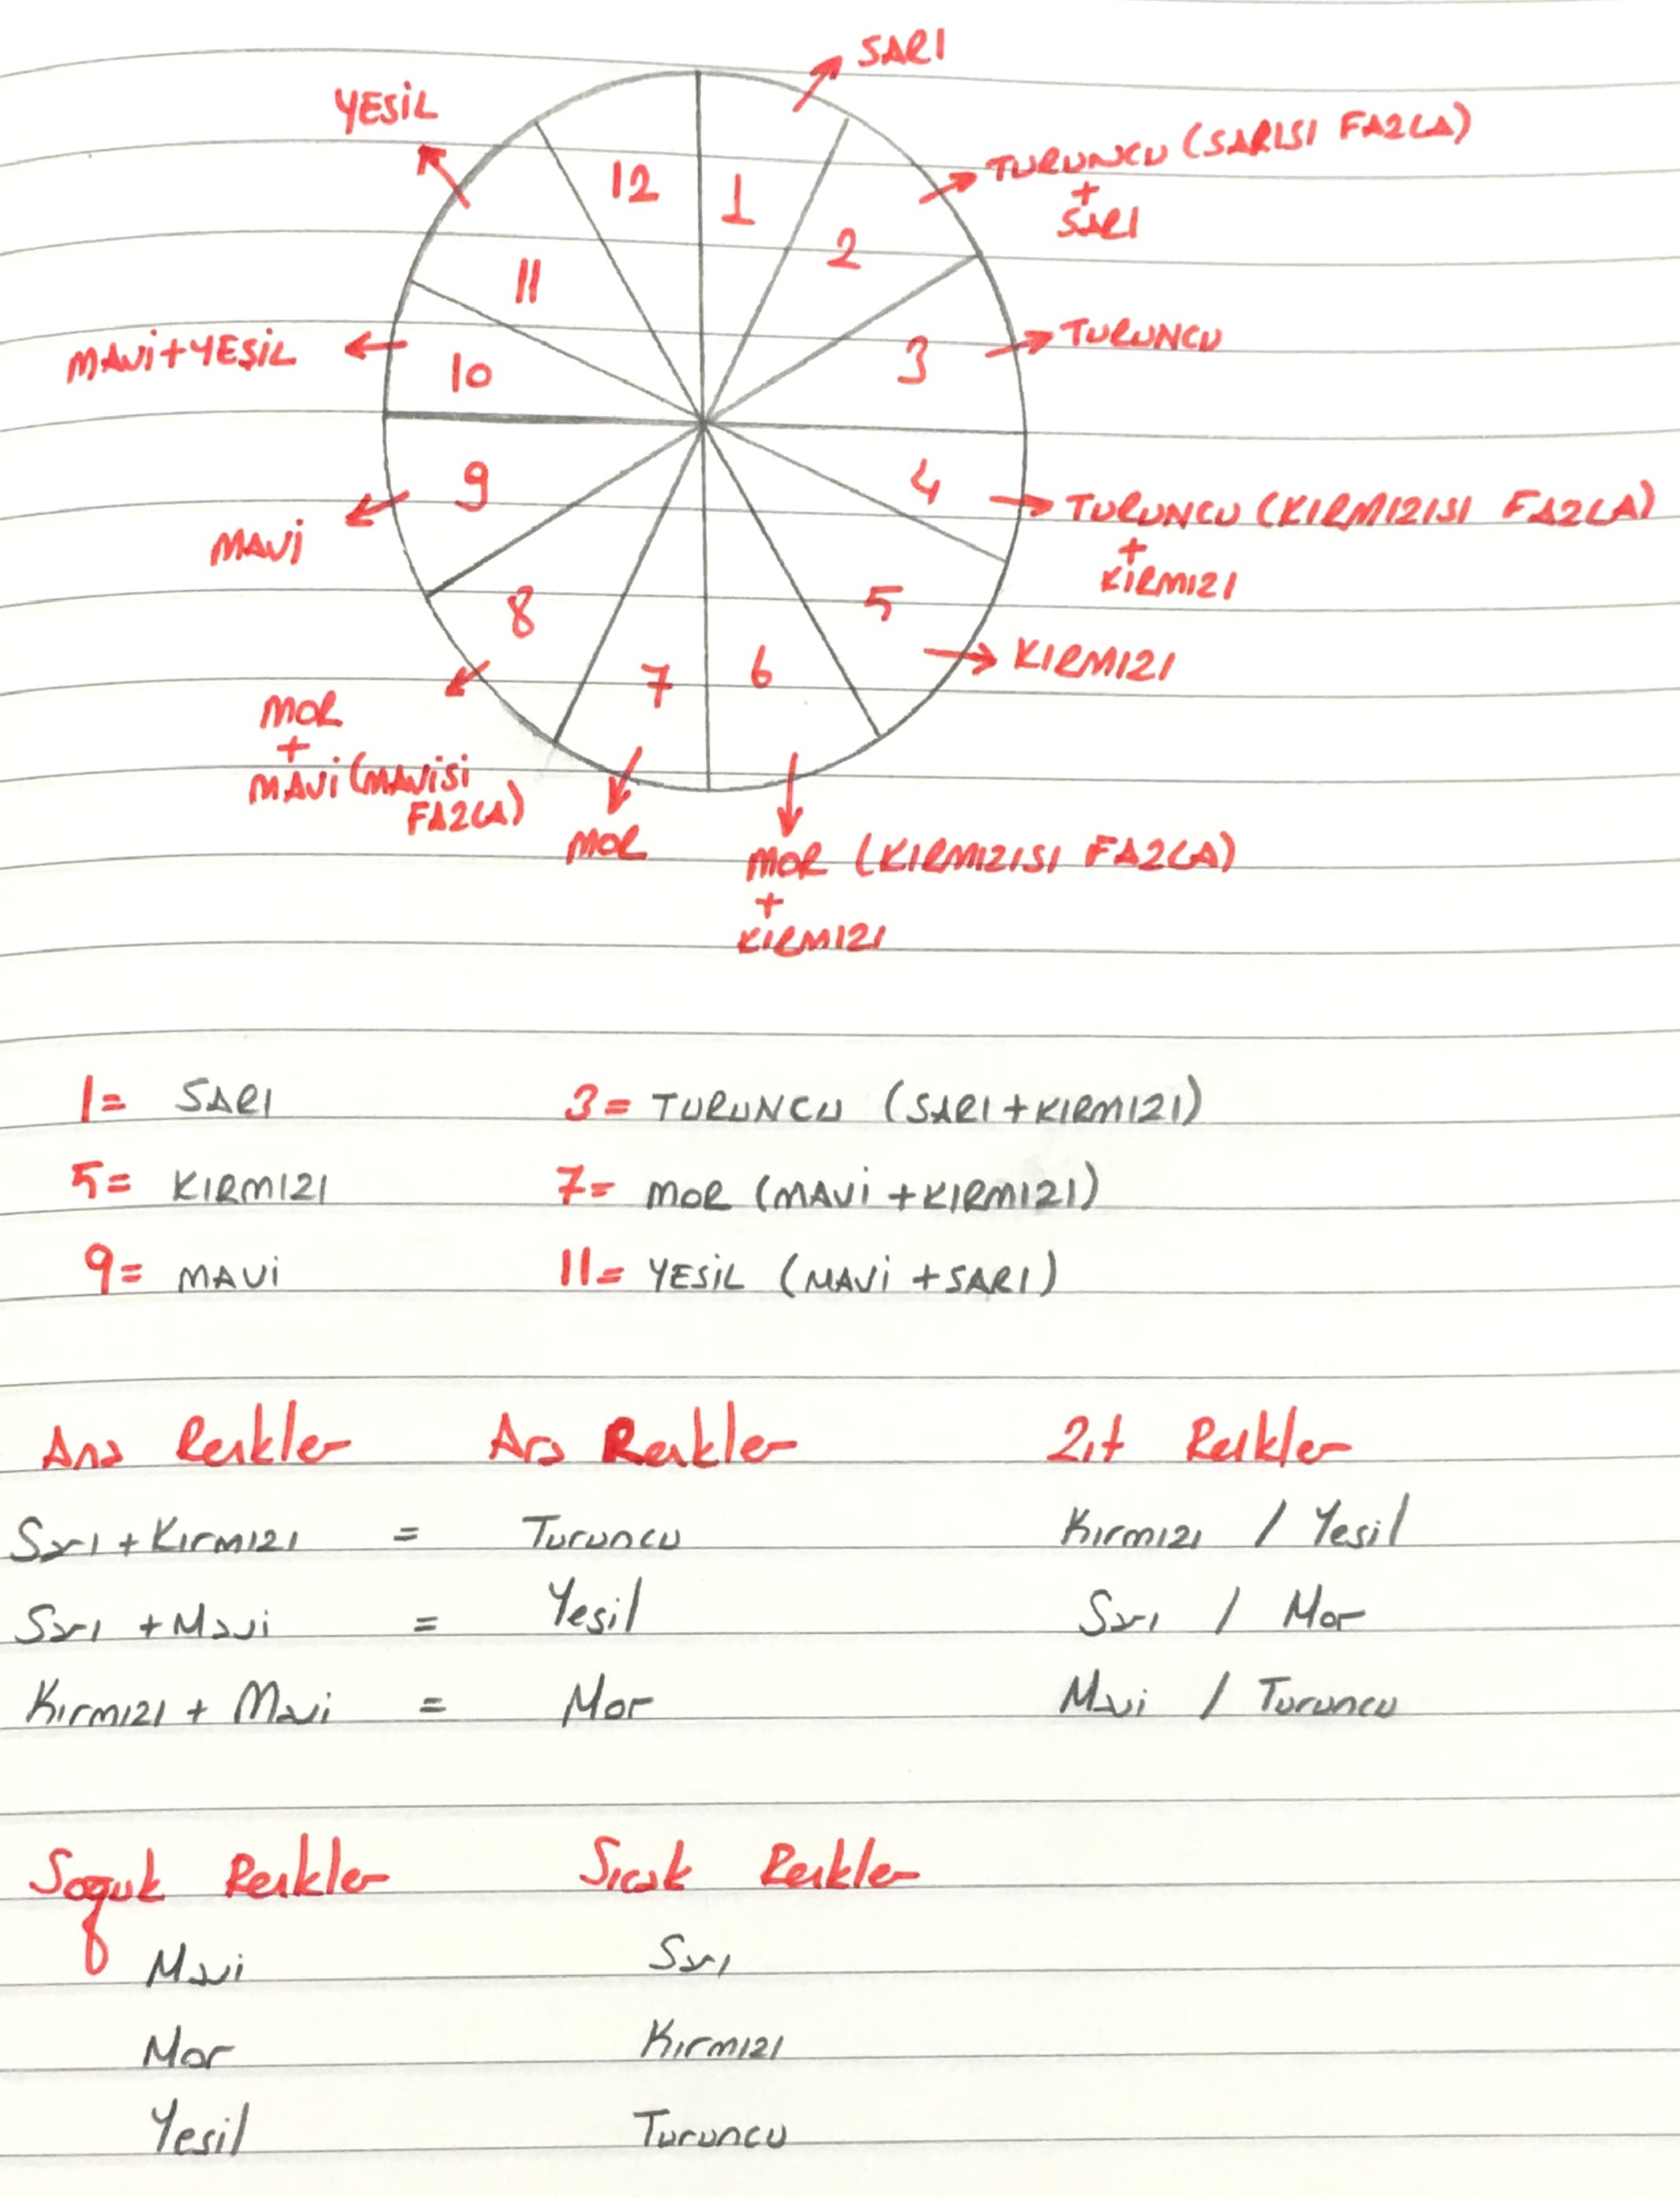 SARI
YESİL
TURUNCU (SARISI FAZLA)
+
SARI
12 1
2
11
TURUNCU
3
MAVİ+YEŞİL
10
9
4
TURUNCU (KIRMIZISI FAZLA)
+
KIRMIZI
MAVİ
8
5
KIRMIZI
7 6
MOR
+
MAVİ (MAVİSİ
FAZLA)
MOR
MOR (KIRMIZISI FAZLA)
+
KIRMIZI
1= SARI 3= TURUNCU (SARI+KIRMIZI)
5= KIRMIZI 7= MOR (MAVİ+KIRMIZI)
9= MAVİ 11= YESİL (MAVİ+SARI)
Ana Renkler Ara Renkler Zıt Renkler
Sarı+Kırmızı = Turuncu Kırmızı / Yesil
Sarı+Mavi = Yesil Sarı / Mor
Kırmızı+Mavi = Mor Mavi / Turuncu
Soguk Renkler Sıcak Renkler
Mavi Sarı
Mor Kırmızı
Yesil Turuncu